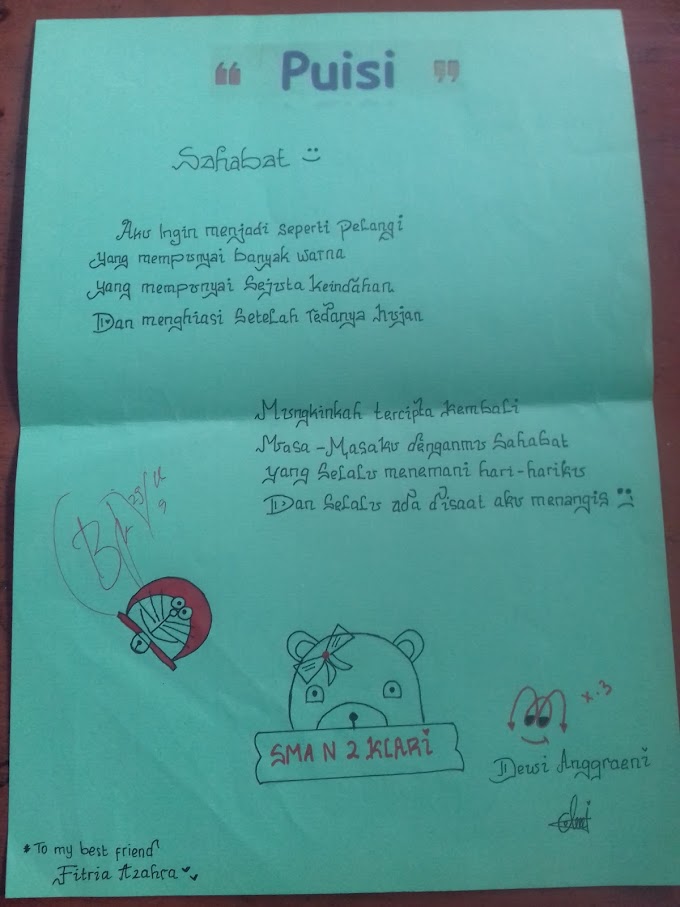 “ Puisi ”
Sahabat
Aku Ingin menjadi seperti pelangi
yang mempunyai banyak warna
yang mempunyai Sejuta keindahan
Dan menghiasi Setelah redanya hujan
Mungkinkah tercipta kembali
Masa-Masaku denganmu Sahabat
yang Selalu menemani hari-hariku
Dan Selalu ada disaat aku menangis
SMA N 2 KLARi
X.3
Dewi Anggraeni
* To my best friend
Fitria Azahra